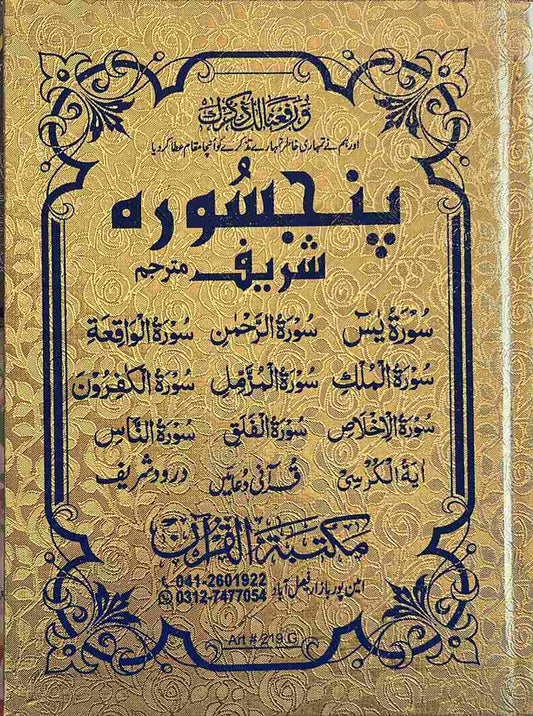 ورفعنا لک ذکرک
اور ہم نے تمہاری خاطر تمہارے تذکرے کو اونچا مقام عطا کر دیا
پنجسُورہ
شریف مترجم
سُورَۃُ یٰسٓ سُورَۃُ الرَّحْمٰن سُورَۃُ الْوَاقِعَۃِ
سُورَۃُ الْمُلْكِ سُورَۃُ الْمُزَّمِّل سُورَۃُ الْکٰفِرُوْنَ
سُورَۃُ الْاِخْلَاصِ سُورَۃُ الْفَلَقِ سُورَۃُ النَّاسِ
اٰیَۃُ الْکُرْسِیْ قُرآنی دُعائیں درود شریف
مکتبۃ القرآن
041-2601922
امین پور بازار فیصل آباد
0312-7477054
Art # 219 G